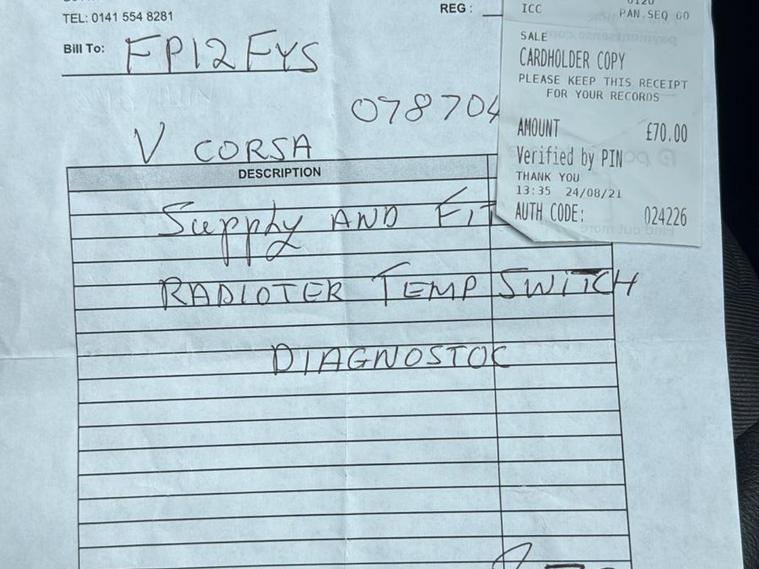 TEL: 0141 554 8281
REG :
Bill To: FP12FYS
078704
V CORSA
DESCRIPTION
Supply AND FIT
RADIOTER TEMP SWITCH
DIAGNOSTOC
ICC
PAN SEQ 00
SALE
CARDHOLDER COPY
PLEASE KEEP THIS RECEIPT
FOR YOUR RECORDS
AMOUNT £70.00
Verified by PIN
THANK YOU
13:35 24/08/21
AUTH CODE: 024226